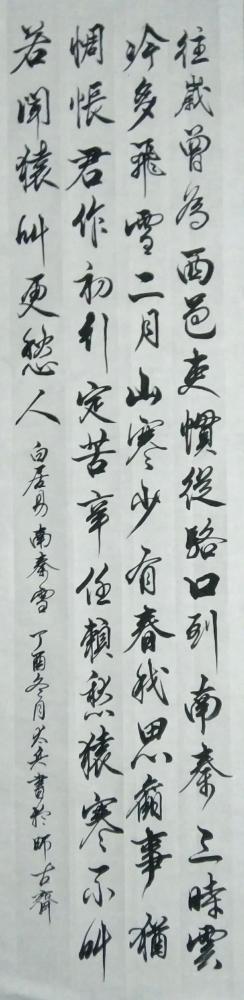 往歲曾為西邑吏慣從駱口到南秦三時雲
冷多飛雪二月山寒少有春我思舊事猶
惆悵君作初行定苦辛任賴愁猿寒不叫
若聞猿叫更愁人 白居易南秦雪 丁酉冬月書於師古齋